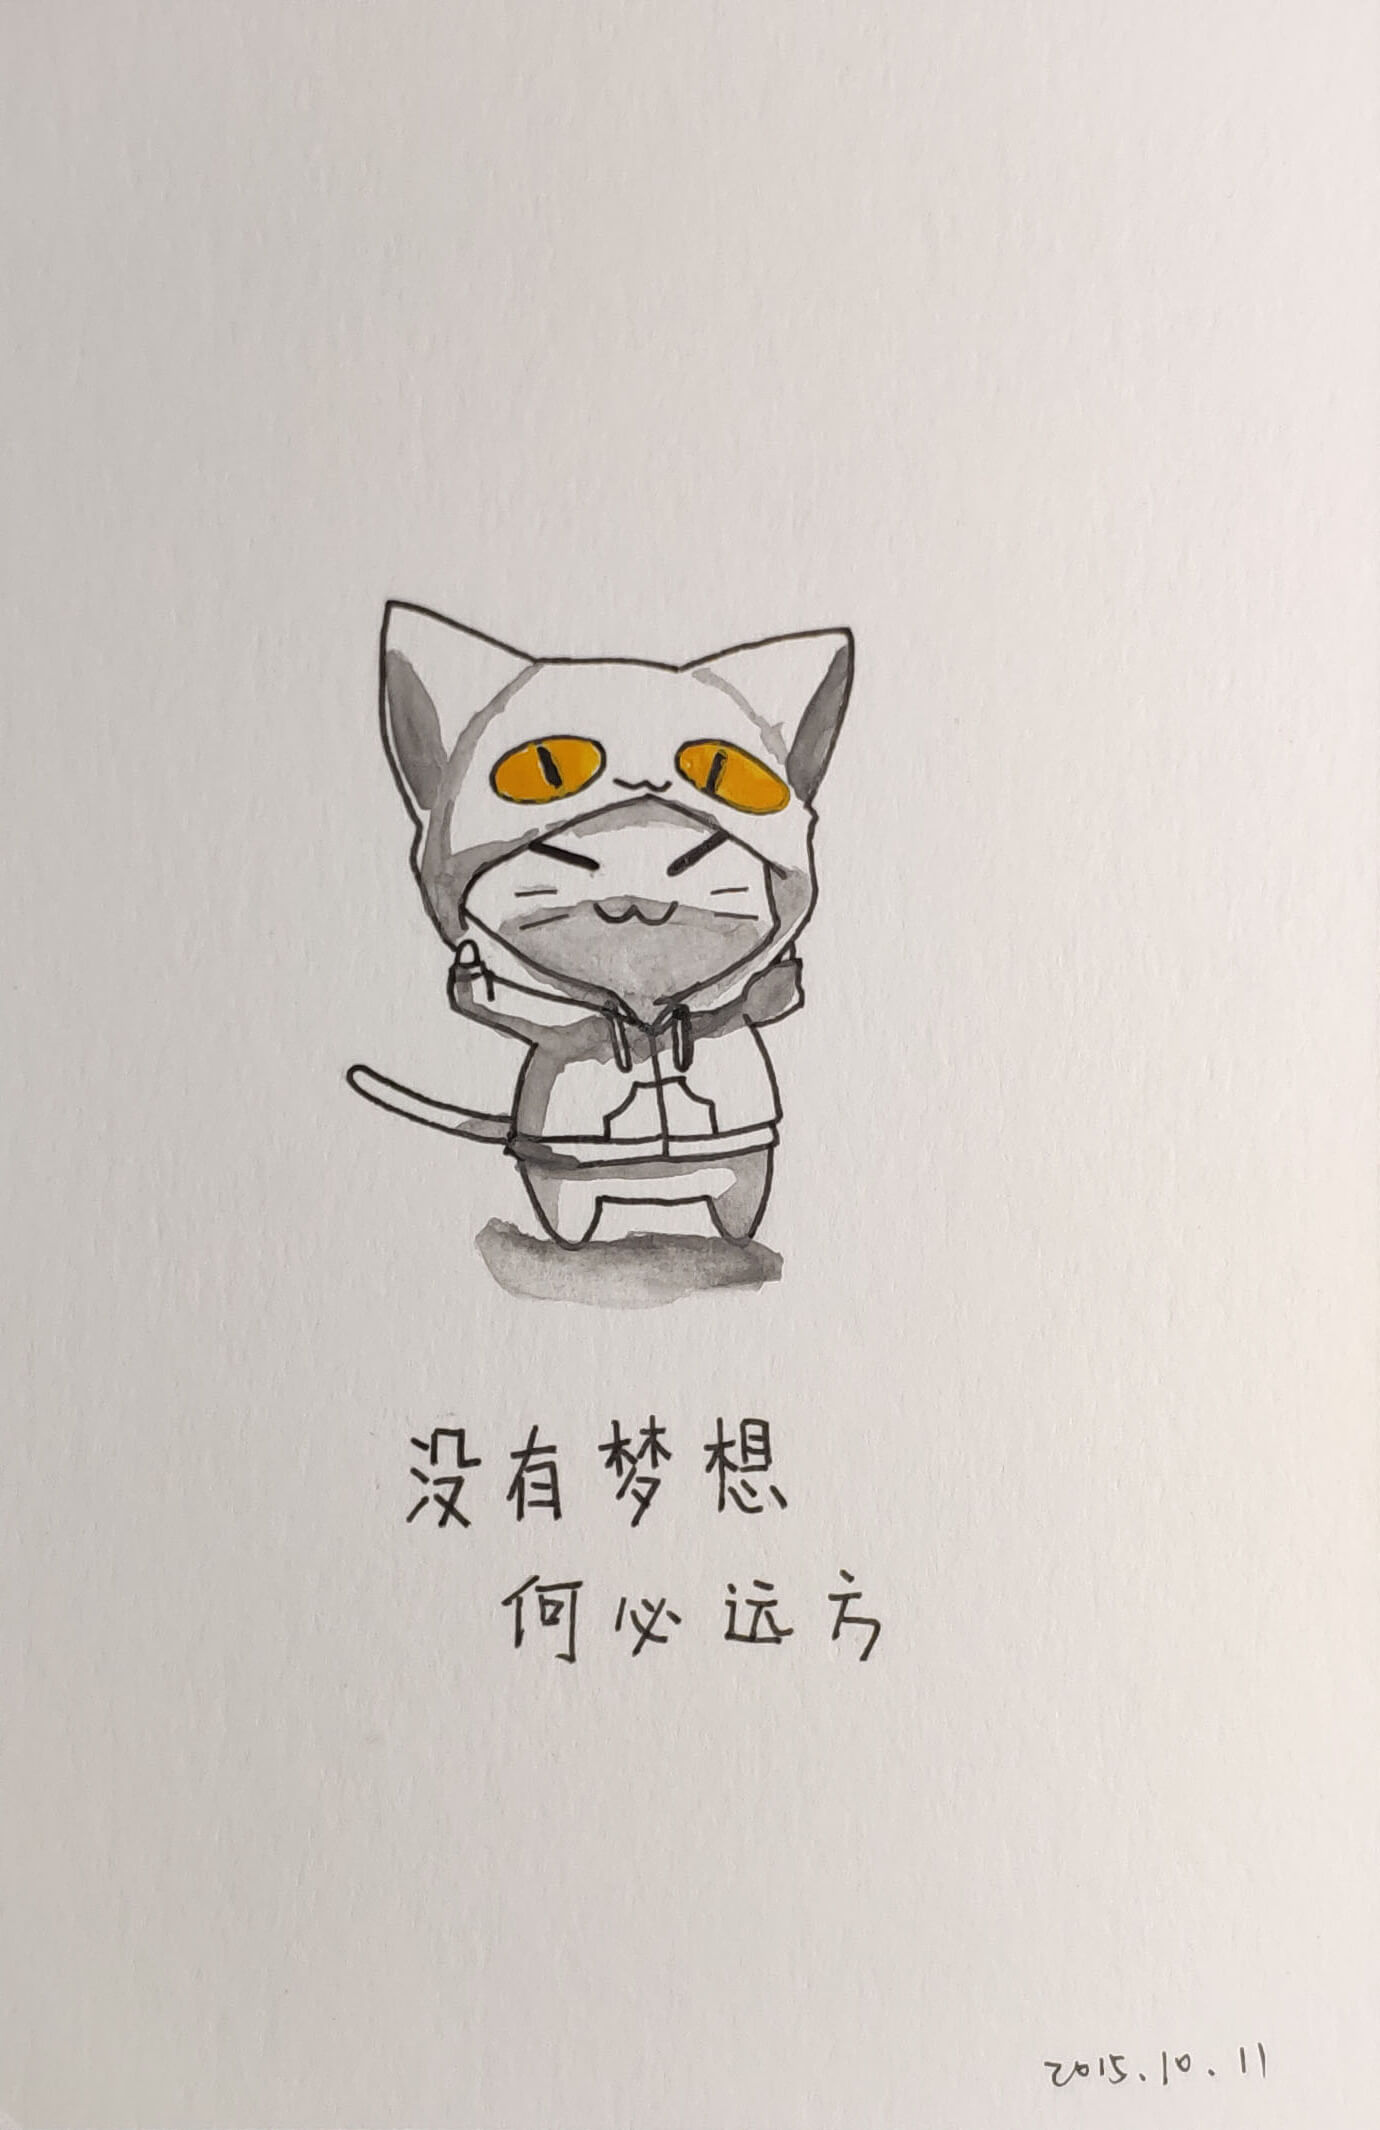 没有梦想
何必远方
2015.10.11